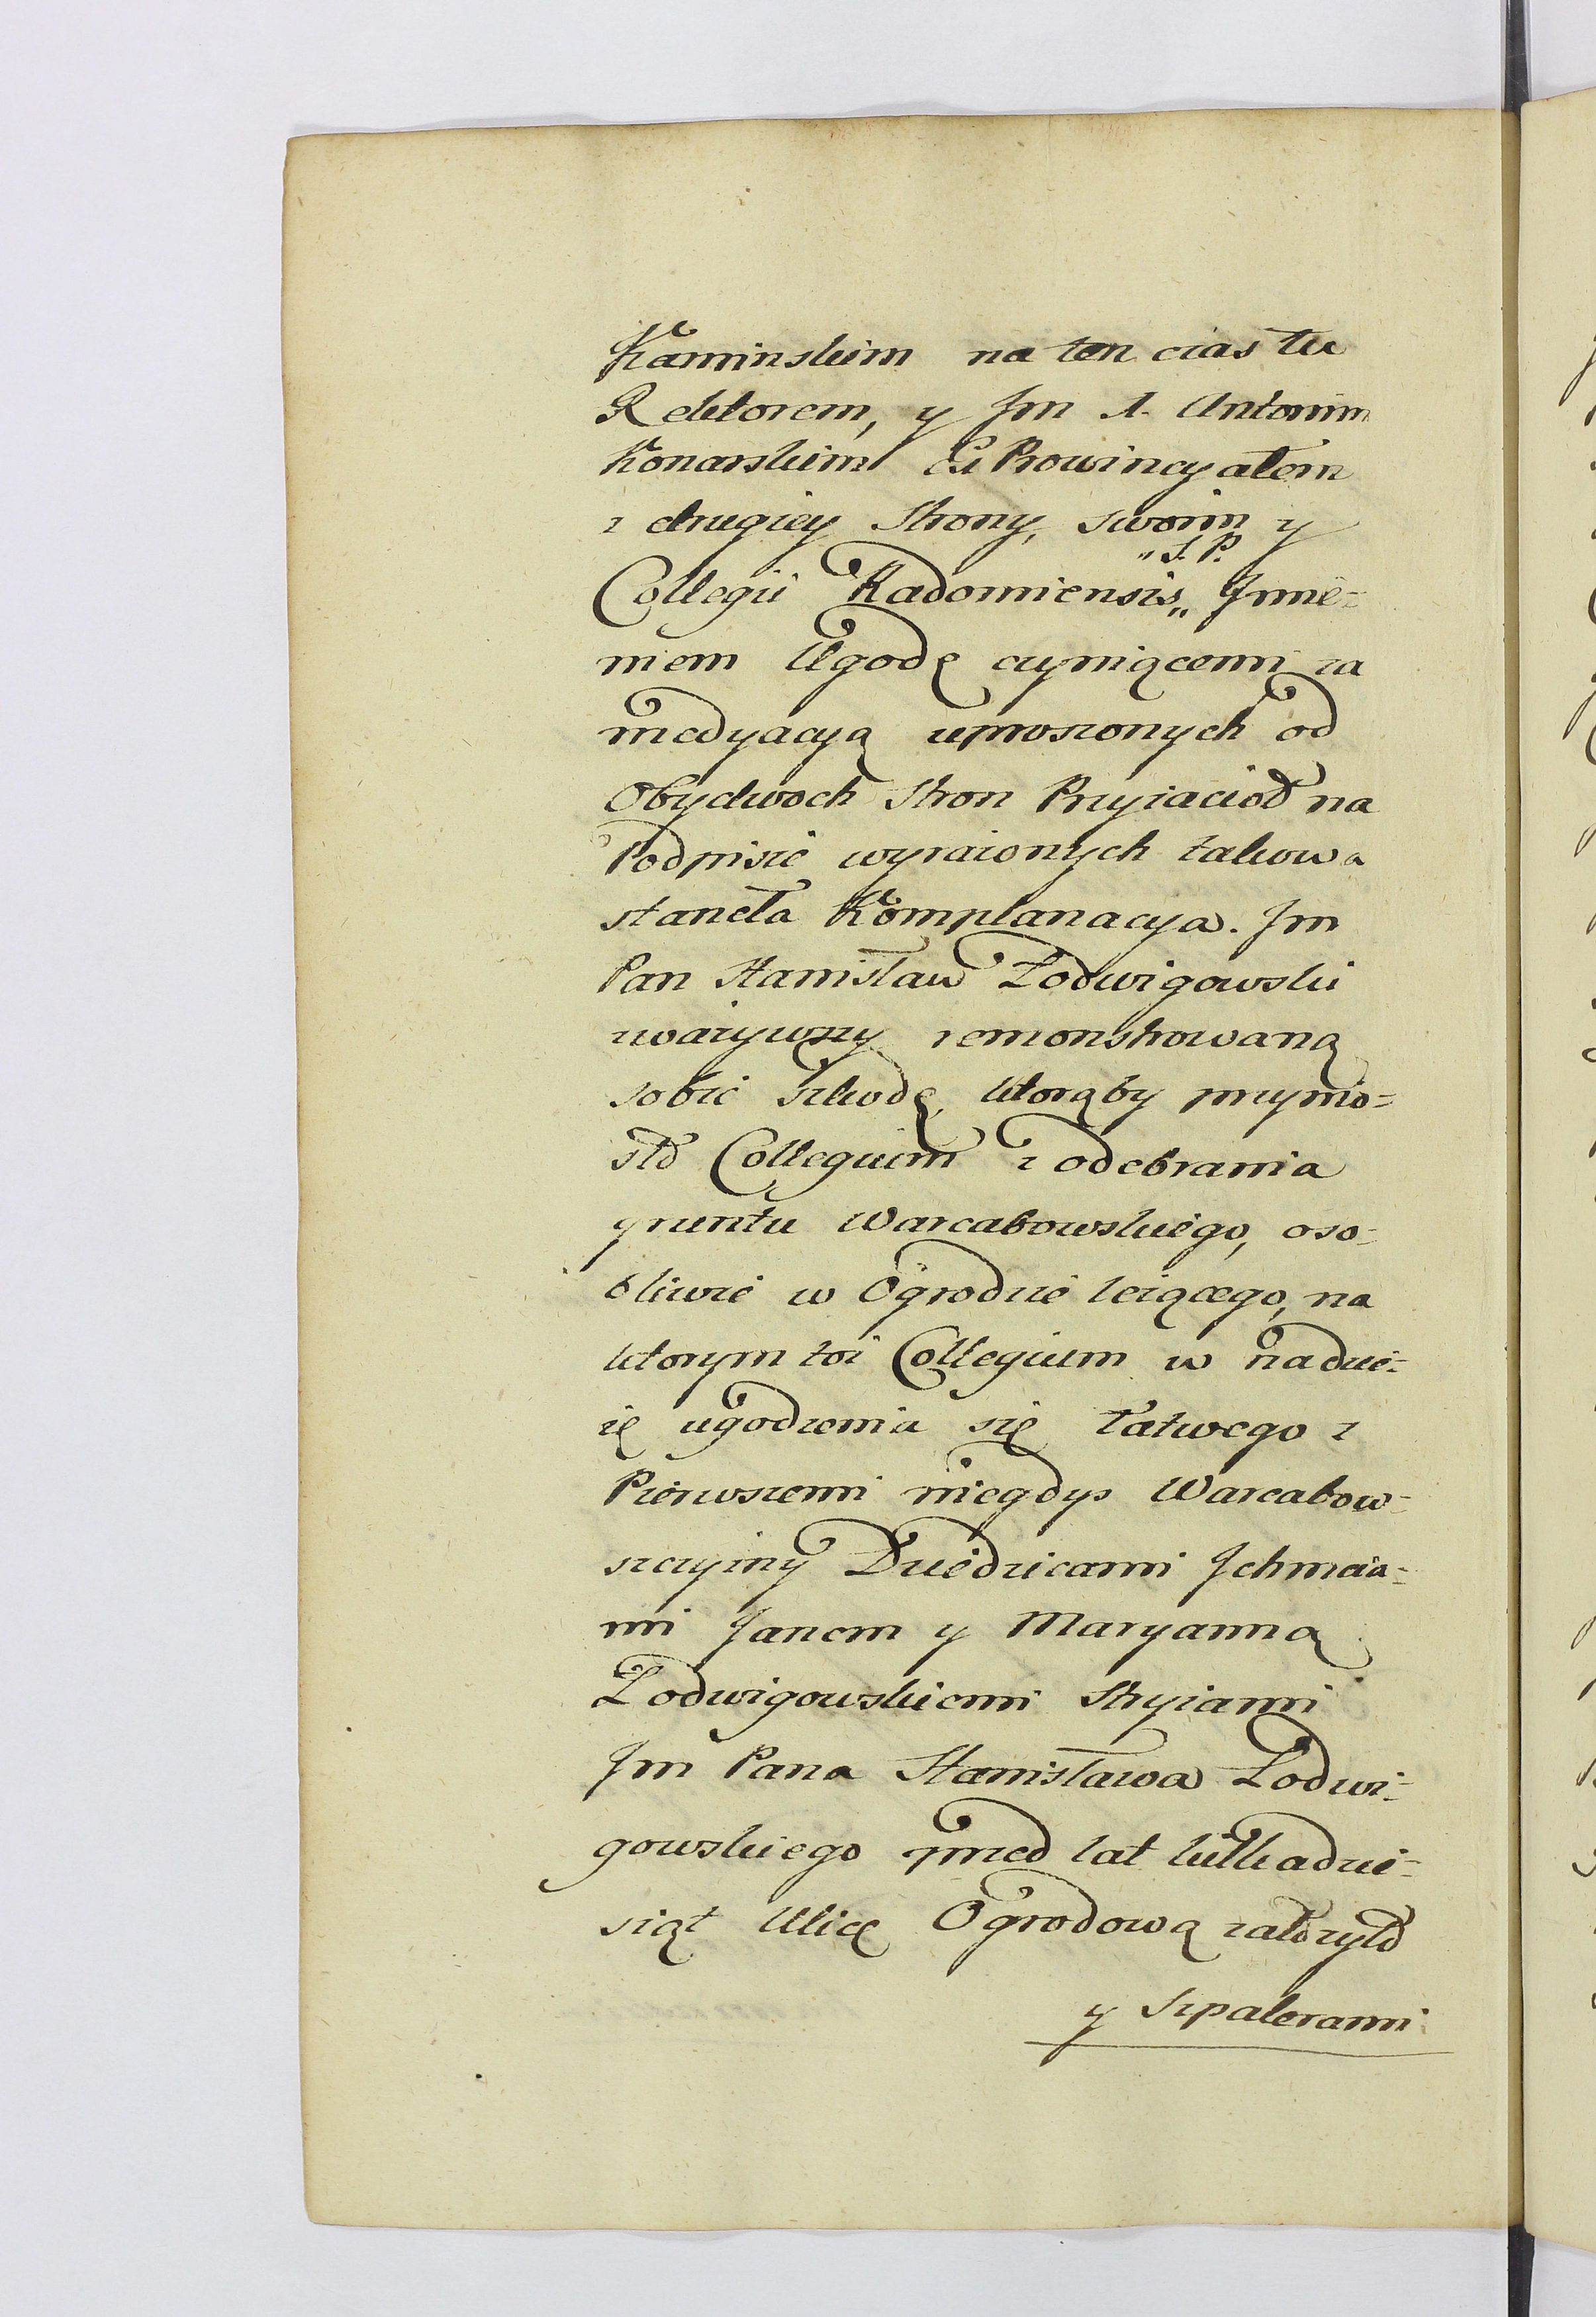 Kaminskim na ten czas tu
Rektorem, y Jm X. Antonim
Konarskim Ex Prowincyałem
z drugiey Strony, swoim y
Collegii Radomiensis „S. P. Imie=
niem Ugodę czyniącemi za
medyacyą uproszonych od
Obydwoch Stron Przyiacioł na
Podpisie wyrażonych takowa
staneła Komplanacya. Jm
Pan Stanisław Łodwigowski
zważywszy remonstrowaną
sobie szkodę, ktorąby przynio=
sło Collegium z odebrania
gruntu Warcabowskiego, oso=
bliwie w Ogrodzie leżącego, na
ktorym toż Collegium w nadzie=
ię ugodzenia się łatwego z
Pierwszemi niegdys Warcabow=
szczyzny Dziedzicami Ichmcia=
mi Janem y Maryanną
Łodwigowskiemi Stryiami
Jm Pana Stanisława Łodwi=
gowskiego przed lat kilkadzie=
siąt Ulicę Ogrodową założyło
y szpalerami